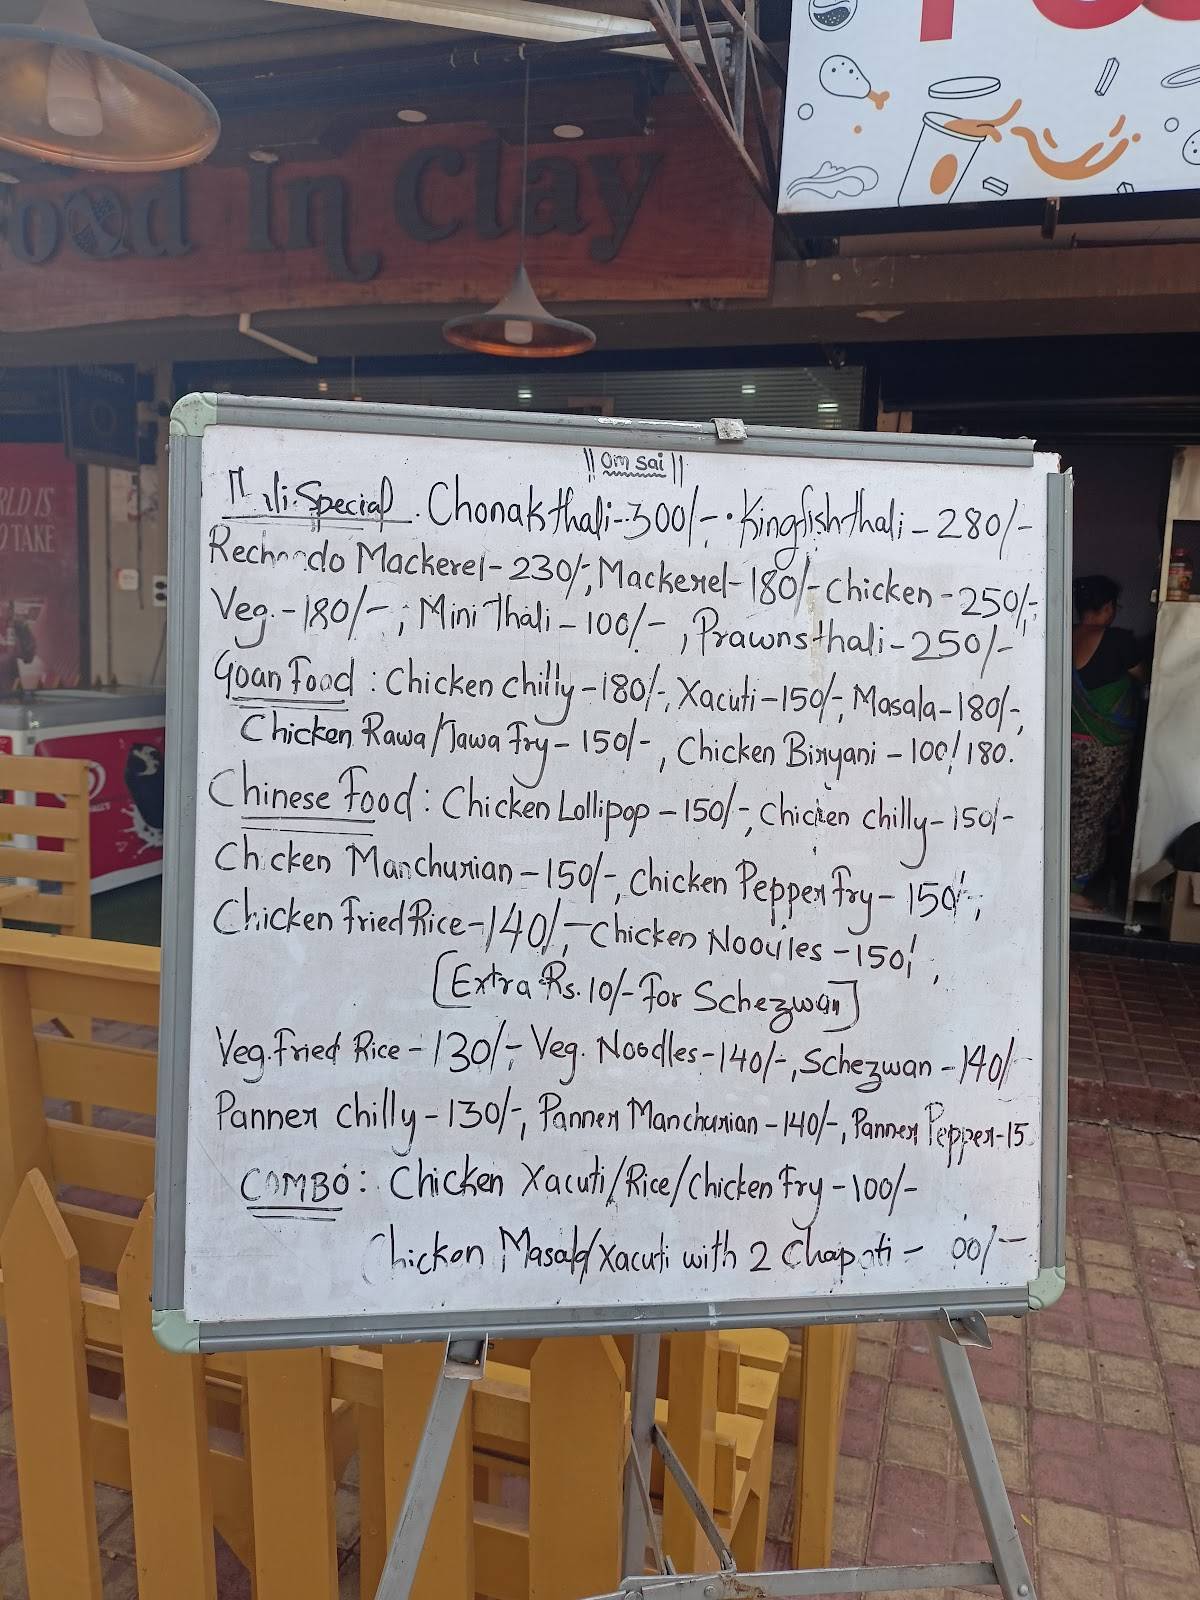 Food In Clay
|| Om Sai ||
Special. Chonak thali - 300/-. • Kingfish thali - 280/-
Mackerel - 230/-, Mackerel - 180/- Chicken - 250/-,
Veg. - 180/-, Mini Thali - 100/-, Prawns thali - 250/-
Goan Food : Chicken chilly - 180/-, Xacuti - 150/-, Masala - 180/-,
Chicken Rawa/Tawa Fry - 150/-, Chicken Biryani - 100/180.
Chinese Food : Chicken Lollipop - 150/-, Chicken chilly - 150/-
Chicken Manchurian - 150/-, Chicken Pepper Fry - 150/-,
Chicken Fried Rice - 140/-, Chicken Noodles - 150/,
[Extra Rs. 10/- For Schezwan]
Veg. Fried Rice - 130/-, Veg. Noodles - 140/-, Schezwan - 140/-
Panner chilly - 130/-, Panner Manchurian - 140/-, Panner Pepper - 15
COMBO : Chicken Xacuti/Rice/Chicken Fry - 100/-
Chicken Masala/Xacuti with 2 Chapati - 00/-